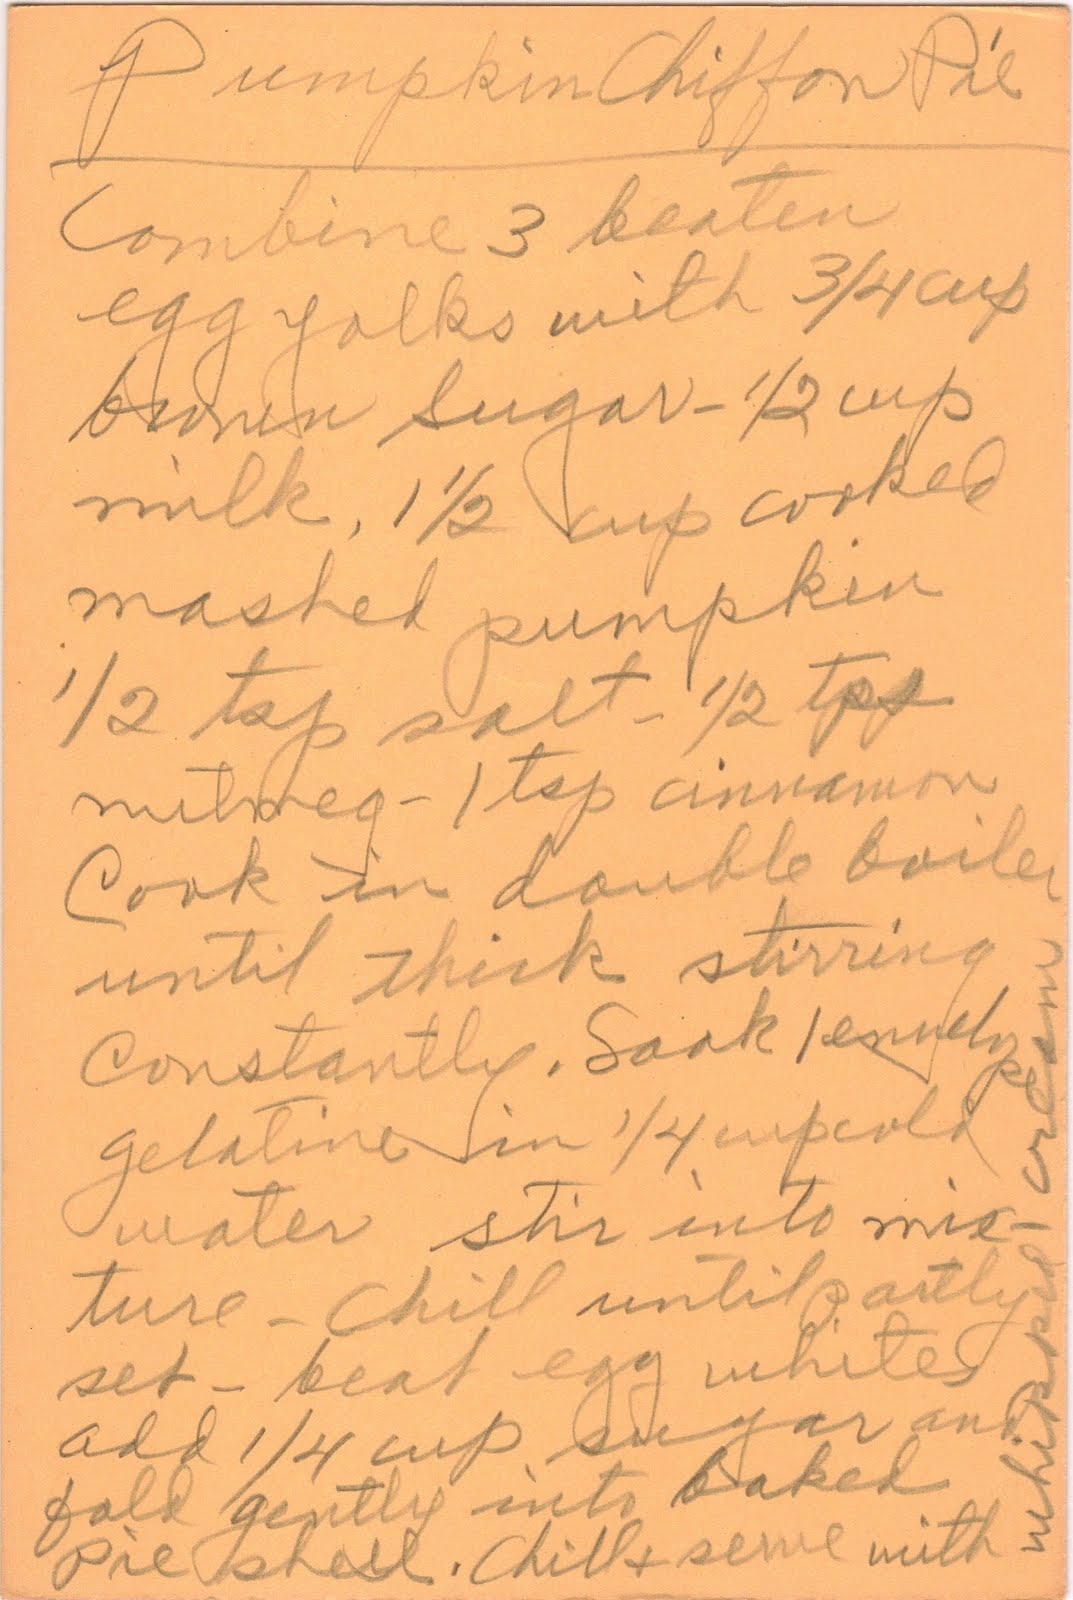 Pumpkin Chiffon Pie
Combine 3 beaten
egg yolks with 3/4 cup
brown sugar - 1/2 cup
milk, 1 1/2 cup cooked
mashed pumpkin
1/2 tsp salt - 1/2 tps
nutmeg - 1 tsp cinnamon
Cook in double boiler
until thick stirring
constantly. Soak 1 envelope
gelatine in 1/4 cup cold
water stir into mix-
ture - chill until partly
set - beat egg whites
add 1/4 cup sugar and
fold gently into baked
pie shell. Chill + serve with
whipped cream